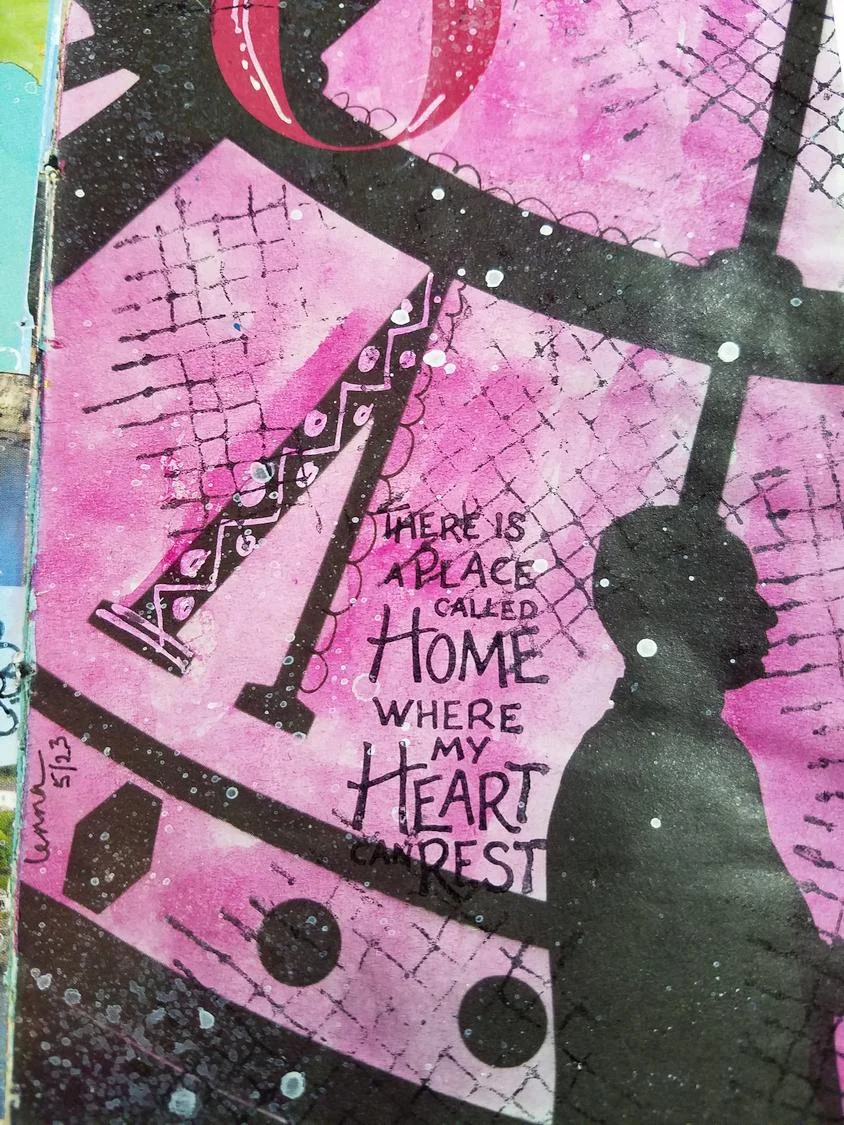 THERE IS
A PLACE
CALLED
HOME
WHERE
MY
HEART
CAN REST
Lenna
5/23